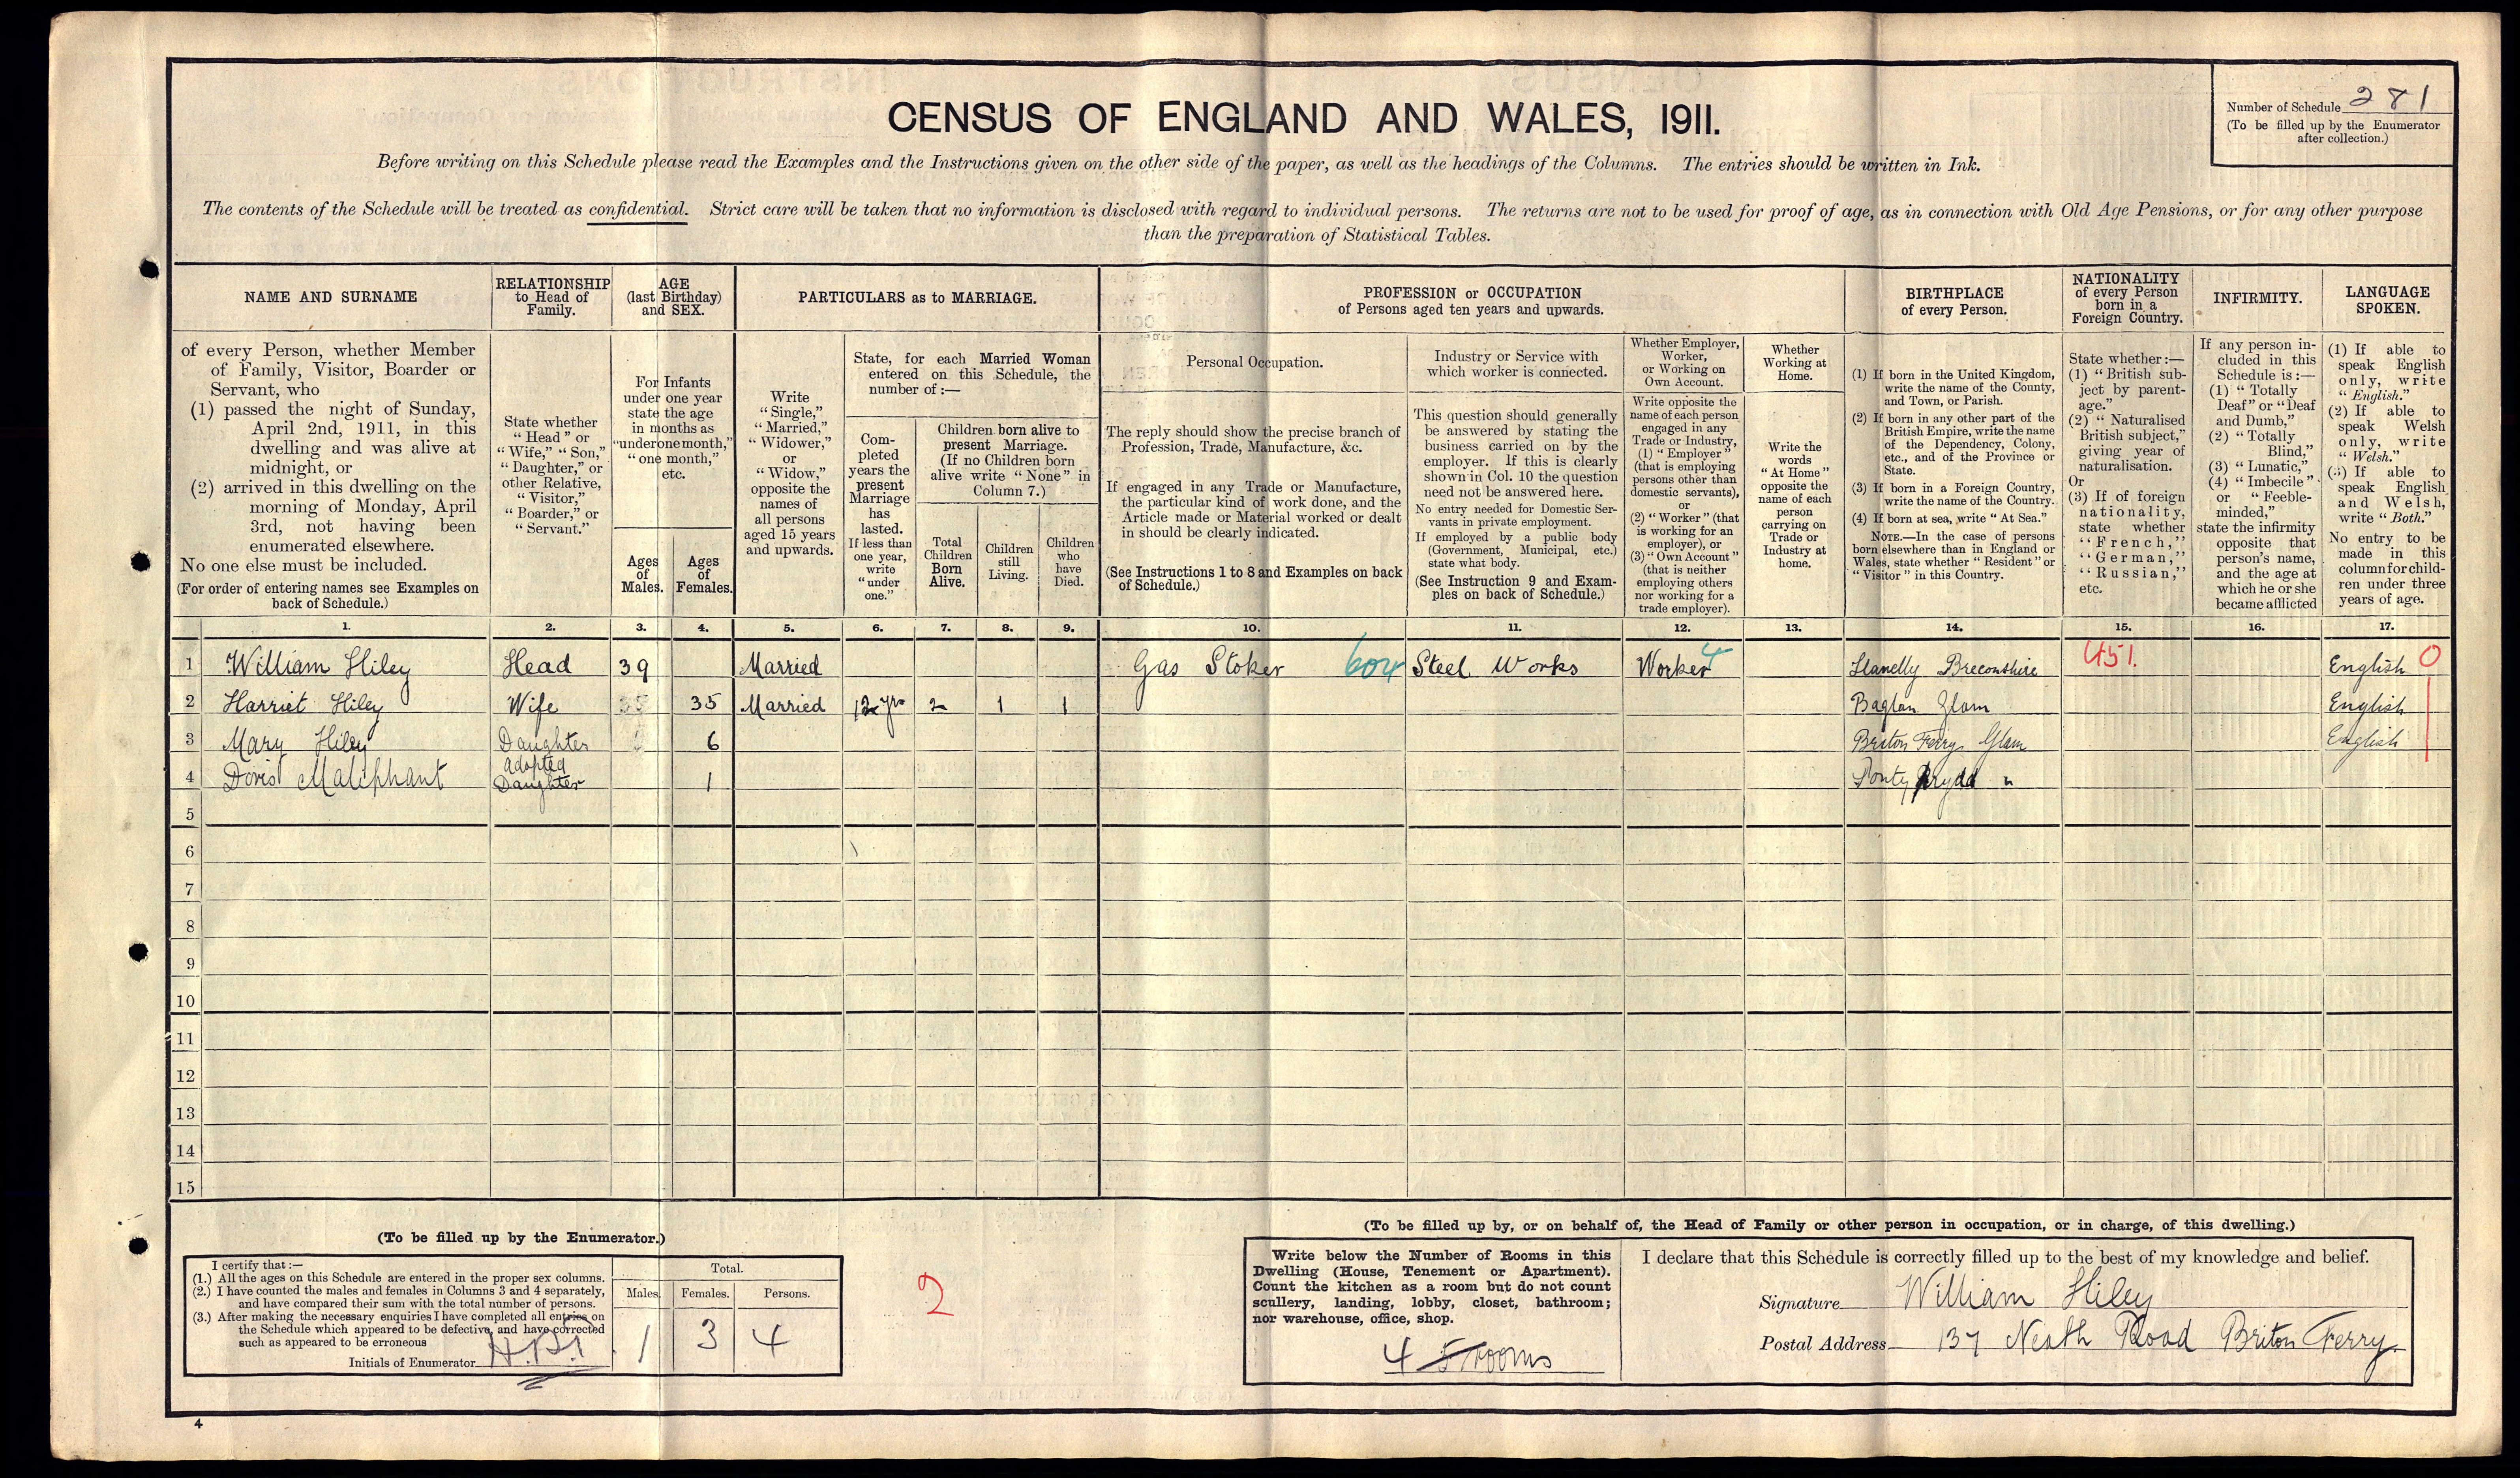 Number of Schedule 281
(To be filled up by the Enumerator
after collection.)
CENSUS OF ENGLAND AND WALES, 1911.
Before writing on this Schedule please read the Examples and the Instructions given on the other side of the paper, as well as the headings of the Columns. The entries should be written in Ink.
The contents of the Schedule will be treated as confidential. Strict care will be taken that no information is disclosed with regard to individual persons. The returns are not to be used for proof of age, as in connection with Old Age Pensions, or for any other purpose
than the preparation of Statistical Tables.
NAME AND SURNAME
of every Person, whether Member
of Family, Visitor, Boarder or
Servant, who
(1) passed the night of Sunday,
April 2nd, 1911, in this
dwelling and was alive at
midnight, or
(2) arrived in this dwelling on the
morning of Monday, April
3rd, not having been
enumerated elsewhere.
No one else must be included.
(For order of entering names see Examples on
back of Schedule.)
RELATIONSHIP
to Head of
Family.
State whether
"Head" or
"Wife," "Son,"
"Daughter," or
other Relative,
"Visitor,"
"Boarder," or
"Servant."
AGE
(last Birthday)
and SEX.
For Infants
under one year
state the age
in months as
"under one month,"
"one month,"
etc.
Ages
of
Males.
Ages
of
Females.
PARTICULARS as to MARRIAGE.
Write
"Single,"
"Married,"
"Widower,"
or
"Widow,"
opposite the
names of
all persons
aged 15 years
and upwards.
State, for each Married Woman
entered on this Schedule, the
number of :—
Com-
pleted
years the
present
Marriage
has
lasted.
If less than
one year,
write
"under
one."
Children born alive to
present Marriage.
(If no Children born
alive write "None" in
Column 7.)
Total
Children
Born
Alive.
Children
still
Living.
Children
who
have
Died.
PROFESSION or OCCUPATION
of Persons aged ten years and upwards.
Personal Occupation.
The reply should show the precise branch of
Profession, Trade, Manufacture, &c.
If engaged in any Trade or Manufacture,
the particular kind of work done, and the
Article made or Material worked or dealt
in should be clearly indicated.
(See Instructions 1 to 8 and Examples on back
of Schedule.)
Industry or Service with
which worker is connected.
This question should generally
be answered by stating the
business carried on by the
employer. If this is clearly
shown in Col. 10 the question
need not be answered here.
No entry needed for Domestic Ser-
vants in private employment.
If employed by a public body
(Government, Municipal, etc.)
state what body.
(See Instruction 9 and Exam-
ples on back of Schedule.)
Whether Employer,
Worker,
or Working on
Own Account.
Write opposite the
name of each person
engaged in any
Trade or Industry,
(1) "Employer"
(that is employing
persons other than
domestic servants),
or
(2) "Worker" (that
is working for an
employer), or
(3) "Own Account"
(that is neither
employing others
nor working for a
trade employer).
Whether
Working at
Home.
Write the
words
"At Home"
opposite the
name of each
person
carrying on
Trade or
Industry at
home.
BIRTHPLACE
of every Person.
(1) If born in the United Kingdom,
write the name of the County,
and Town, or Parish.
(2) If born in any other part of the
British Empire, write the name
of the Dependency, Colony,
etc., and of the Province or
State.
(3) If born in a Foreign Country,
write the name of the Country.
(4) If born at sea, write "At Sea."
NOTE.—In the case of persons
born elsewhere than in England or
Wales, state whether "Resident" or
"Visitor" in this Country.
NATIONALITY
of every Person
born in a
Foreign Country.
State whether :—
(1) "British sub-
ject by parent-
age."
(2) "Naturalised
British subject,"
giving year of
naturalisation.
Or
(3) If of foreign
nationality,
state whether
"French,"
"German,"
"Russian,"
etc.
INFIRMITY.
If any person in-
cluded in this
Schedule is :—
(1) "Totally
Deaf" or "Deaf
and Dumb,"
(2) "Totally
Blind,"
(3) "Lunatic,"
(4) "Imbecile"
or "Feeble-
minded,"
state the infirmity
opposite that
person's name,
and the age at
which he or she
became afflicted
LANGUAGE
SPOKEN.
(1) If able to
speak English
only, write
"English."
(2) If able to
speak Welsh
only, write
"Welsh."
(3) If able to
speak English
and Welsh,
write "Both."
No entry to be
made in this
column for child-
ren under three
years of age.
1. 2. 3. 4. 5. 6. 7. 8. 9. 10. 11. 12. 13. 14. 15. 16. 17.
1 William Hiley Head 39 Married Gas Stoker 604 Steel Works Worker 4 Llanelly Breconshire 451. English 0
2 Harriet Hiley Wife 35 Married 12 yrs 2 1 1 Baglan Glam English
3 Mary Hiley Daughter 6 Briton Ferry Glam English
4 Doris Maliphant adopted Daughter 1 Ponty Prydd "
5
6
7
8
9
10
11
12
13
14
15
(To be filled up by the Enumerator.)
I certify that :—
(1.) All the ages on this Schedule are entered in the proper sex columns.
(2.) I have counted the males and females in Columns 3 and 4 separately,
and have compared their sum with the total number of persons.
(3.) After making the necessary enquiries I have completed all entries on
the Schedule which appeared to be defective, and have corrected
such as appeared to be erroneous
Initials of Enumerator
Total.
Males. Females. Persons.
1 3 4
2
(To be filled up by, or on behalf of, the Head of Family or other person in occupation, or in charge, of this dwelling.)
Write below the Number of Rooms in this
Dwelling (House, Tenement or Apartment).
Count the kitchen as a room but do not count
scullery, landing, lobby, closet, bathroom;
nor warehouse, office, shop.
4 5 rooms
I declare that this Schedule is correctly filled up to the best of my knowledge and belief.
Signature William Hiley
Postal Address 137 Neath Road Briton Ferry.
4